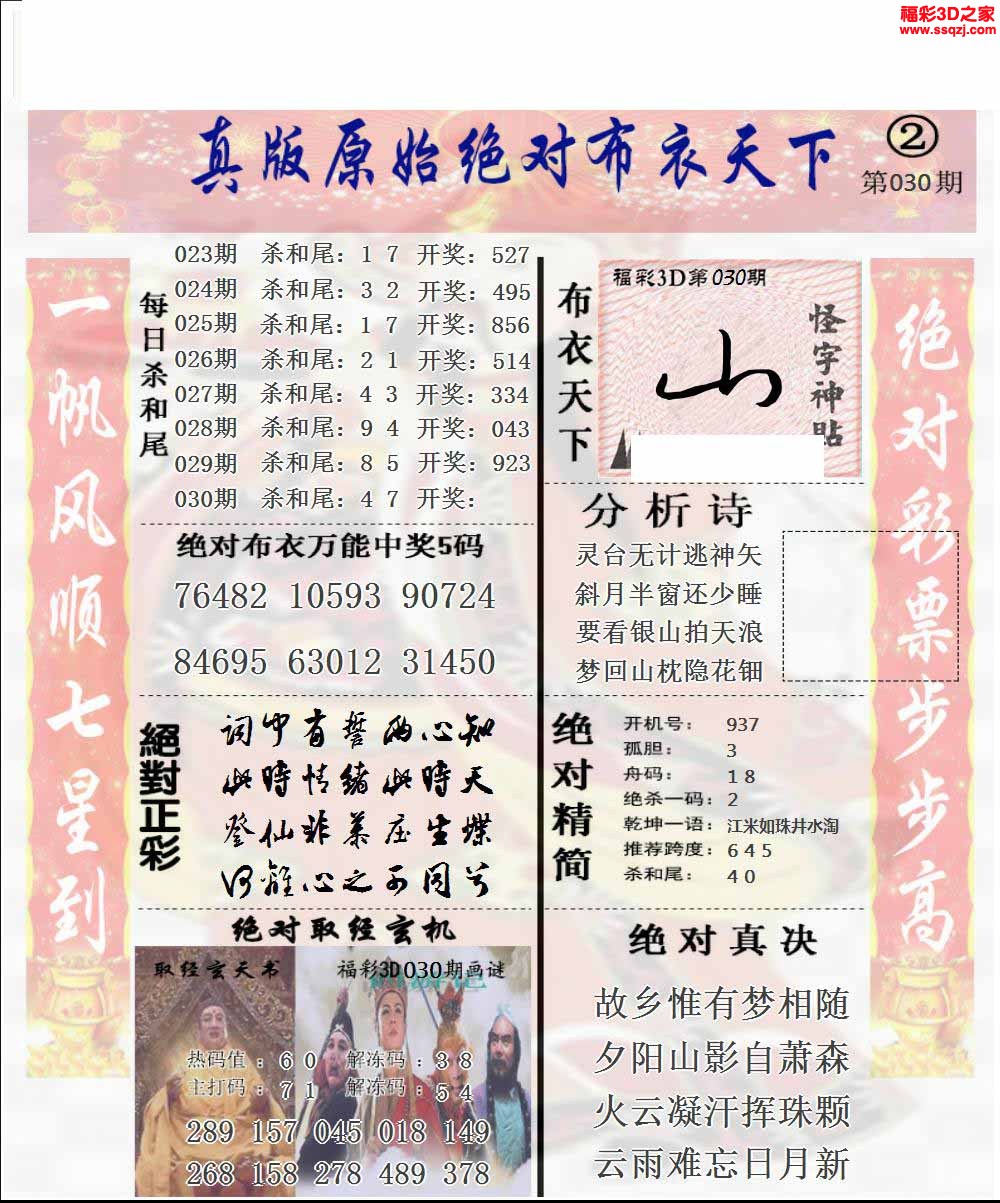 福彩3D之家
www.ssqzj.com
真版原始绝对布衣天下
②
第030期
一帆风顺七星到
每日杀和尾
023期 杀和尾：1 7 开奖：527
024期 杀和尾：3 2 开奖：495
025期 杀和尾：1 7 开奖：856
026期 杀和尾：2 1 开奖：514
027期 杀和尾：4 3 开奖：334
028期 杀和尾：9 4 开奖：043
029期 杀和尾：8 5 开奖：923
030期 杀和尾：4 7 开奖：
绝对布衣万能中奖5码
76482 10593 90724
84695 63012 31450
絕對正彩
词中有誓两心知
此時情绪此時天
登仙非慕庄生蝶
何離心之而同兮
绝对取经玄机
取经玄天书
福彩3D030期画谜
热码值：6 0 解冻码：3 8
主打码：7 1 解冻码：5 4
289 157 045 018 149
268 158 278 489 378
布衣天下
福彩3D第030期
山
怪字神贴
分析诗
灵台无计逃神矢
斜月半窗还少睡
要看银山拍天浪
梦回山枕隐花钿
绝对精简
开机号：937
孤胆：3
舟码：1 8
绝杀一码：2
乾坤一语：江米如珠井水淘
推荐跨度：6 4 5
杀和尾：4 0
绝对真决
故乡惟有梦相随
夕阳山影自萧森
火云凝汗挥珠颗
云雨难忘日月新
绝对彩票步步高